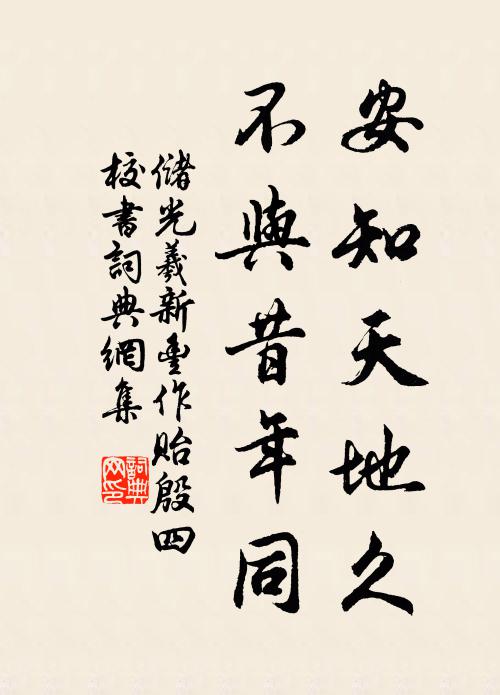 安知天地久
不與昔年同
儲光羲新豐作貽殷四
校書詞典網集
詞典網印